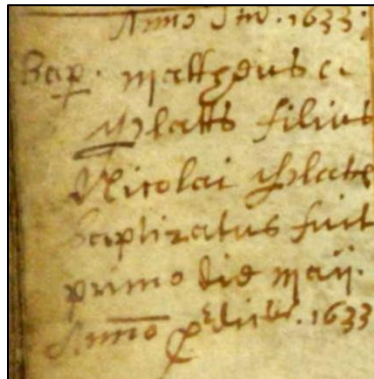 Anno Dni. 1633.
Bap. Mattheus
Platts filius
Nicolai Platts
baptizatus fuit
primo die maij.
Anno 1633